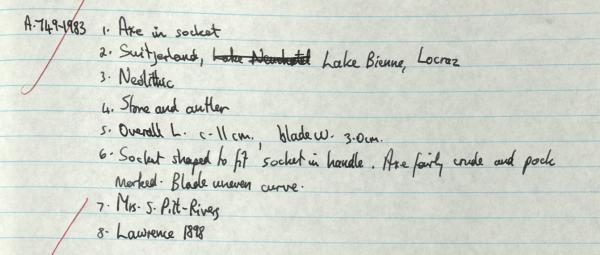 A.749.1983 1. Axe in socket
2. Switzerland, Lake Neuchatel Lake Bienne, Locraz
3. Neolithic
4. Stone and antler
5. Overall L. c. 11 cm., blade W. 3.0cm.
6. Socket shaped to fit socket in handle. Axe fairly crude and pock
marked. Blade uneven curve.
7. Mrs. S. Pitt-Rivers
8. Lawrence 1898